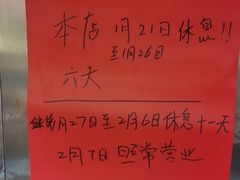 本店1月21日休息!!
至1月26日
六天
继续1月27日至2月6日休息十一天
2月7日照常营业